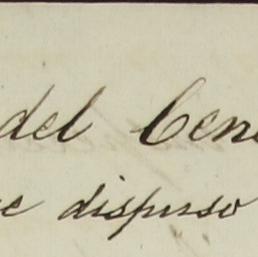 del Cen
e dispuso